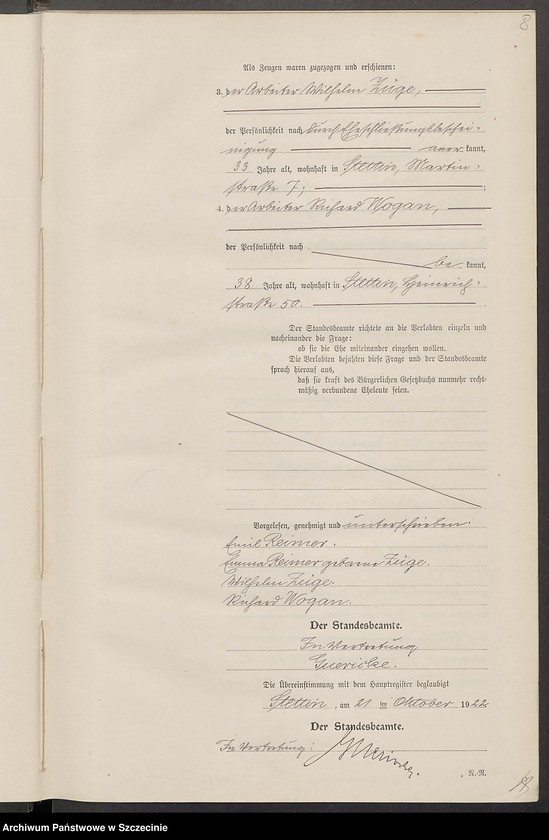 8
Als Zeugen waren zugezogen und erschienen:
3. der Arbeiter Wilhelm Züge,
der Persönlichkeit nach durch Eheschließungsbeschei-
nigung anerkannt,
33 Jahre alt, wohnhaft in Stettin, Martin-
straße 7;
4. der Arbeiter Richard Wogan,
der Persönlichkeit nach
be kannt,
38 Jahre alt, wohnhaft in Stettin, Heinrich-
straße 50.
Der Standesbeamte richtete an die Verlobten einzeln und
nacheinander die Frage:
ob sie die Ehe miteinander eingehen wollen.
Die Verlobten bejahten diese Frage und der Standesbeamte
sprach hierauf aus,
daß sie kraft des Bürgerlichen Gesetzbuchs nunmehr recht-
mäßig verbundene Eheleute seien.
Vorgelesen, genehmigt und unterschrieben.
Emil Reimer.
Emma Reimer geborne Züge.
Wilhelm Züge.
Richard Wogan.
Der Standesbeamte.
In Vertretung
Guericke.
Die Übereinstimmung mit dem Hauptregister beglaubigt
Stettin, am 21 ten Oktober 1922
Der Standesbeamte.
In Vertretung: Guericke.
N.-R.
Archiwum Państwowe w Szczecinie